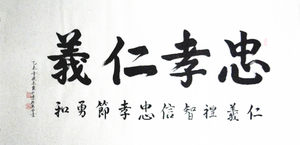 忠孝仁義
仁義禮智信忠孝節勇和